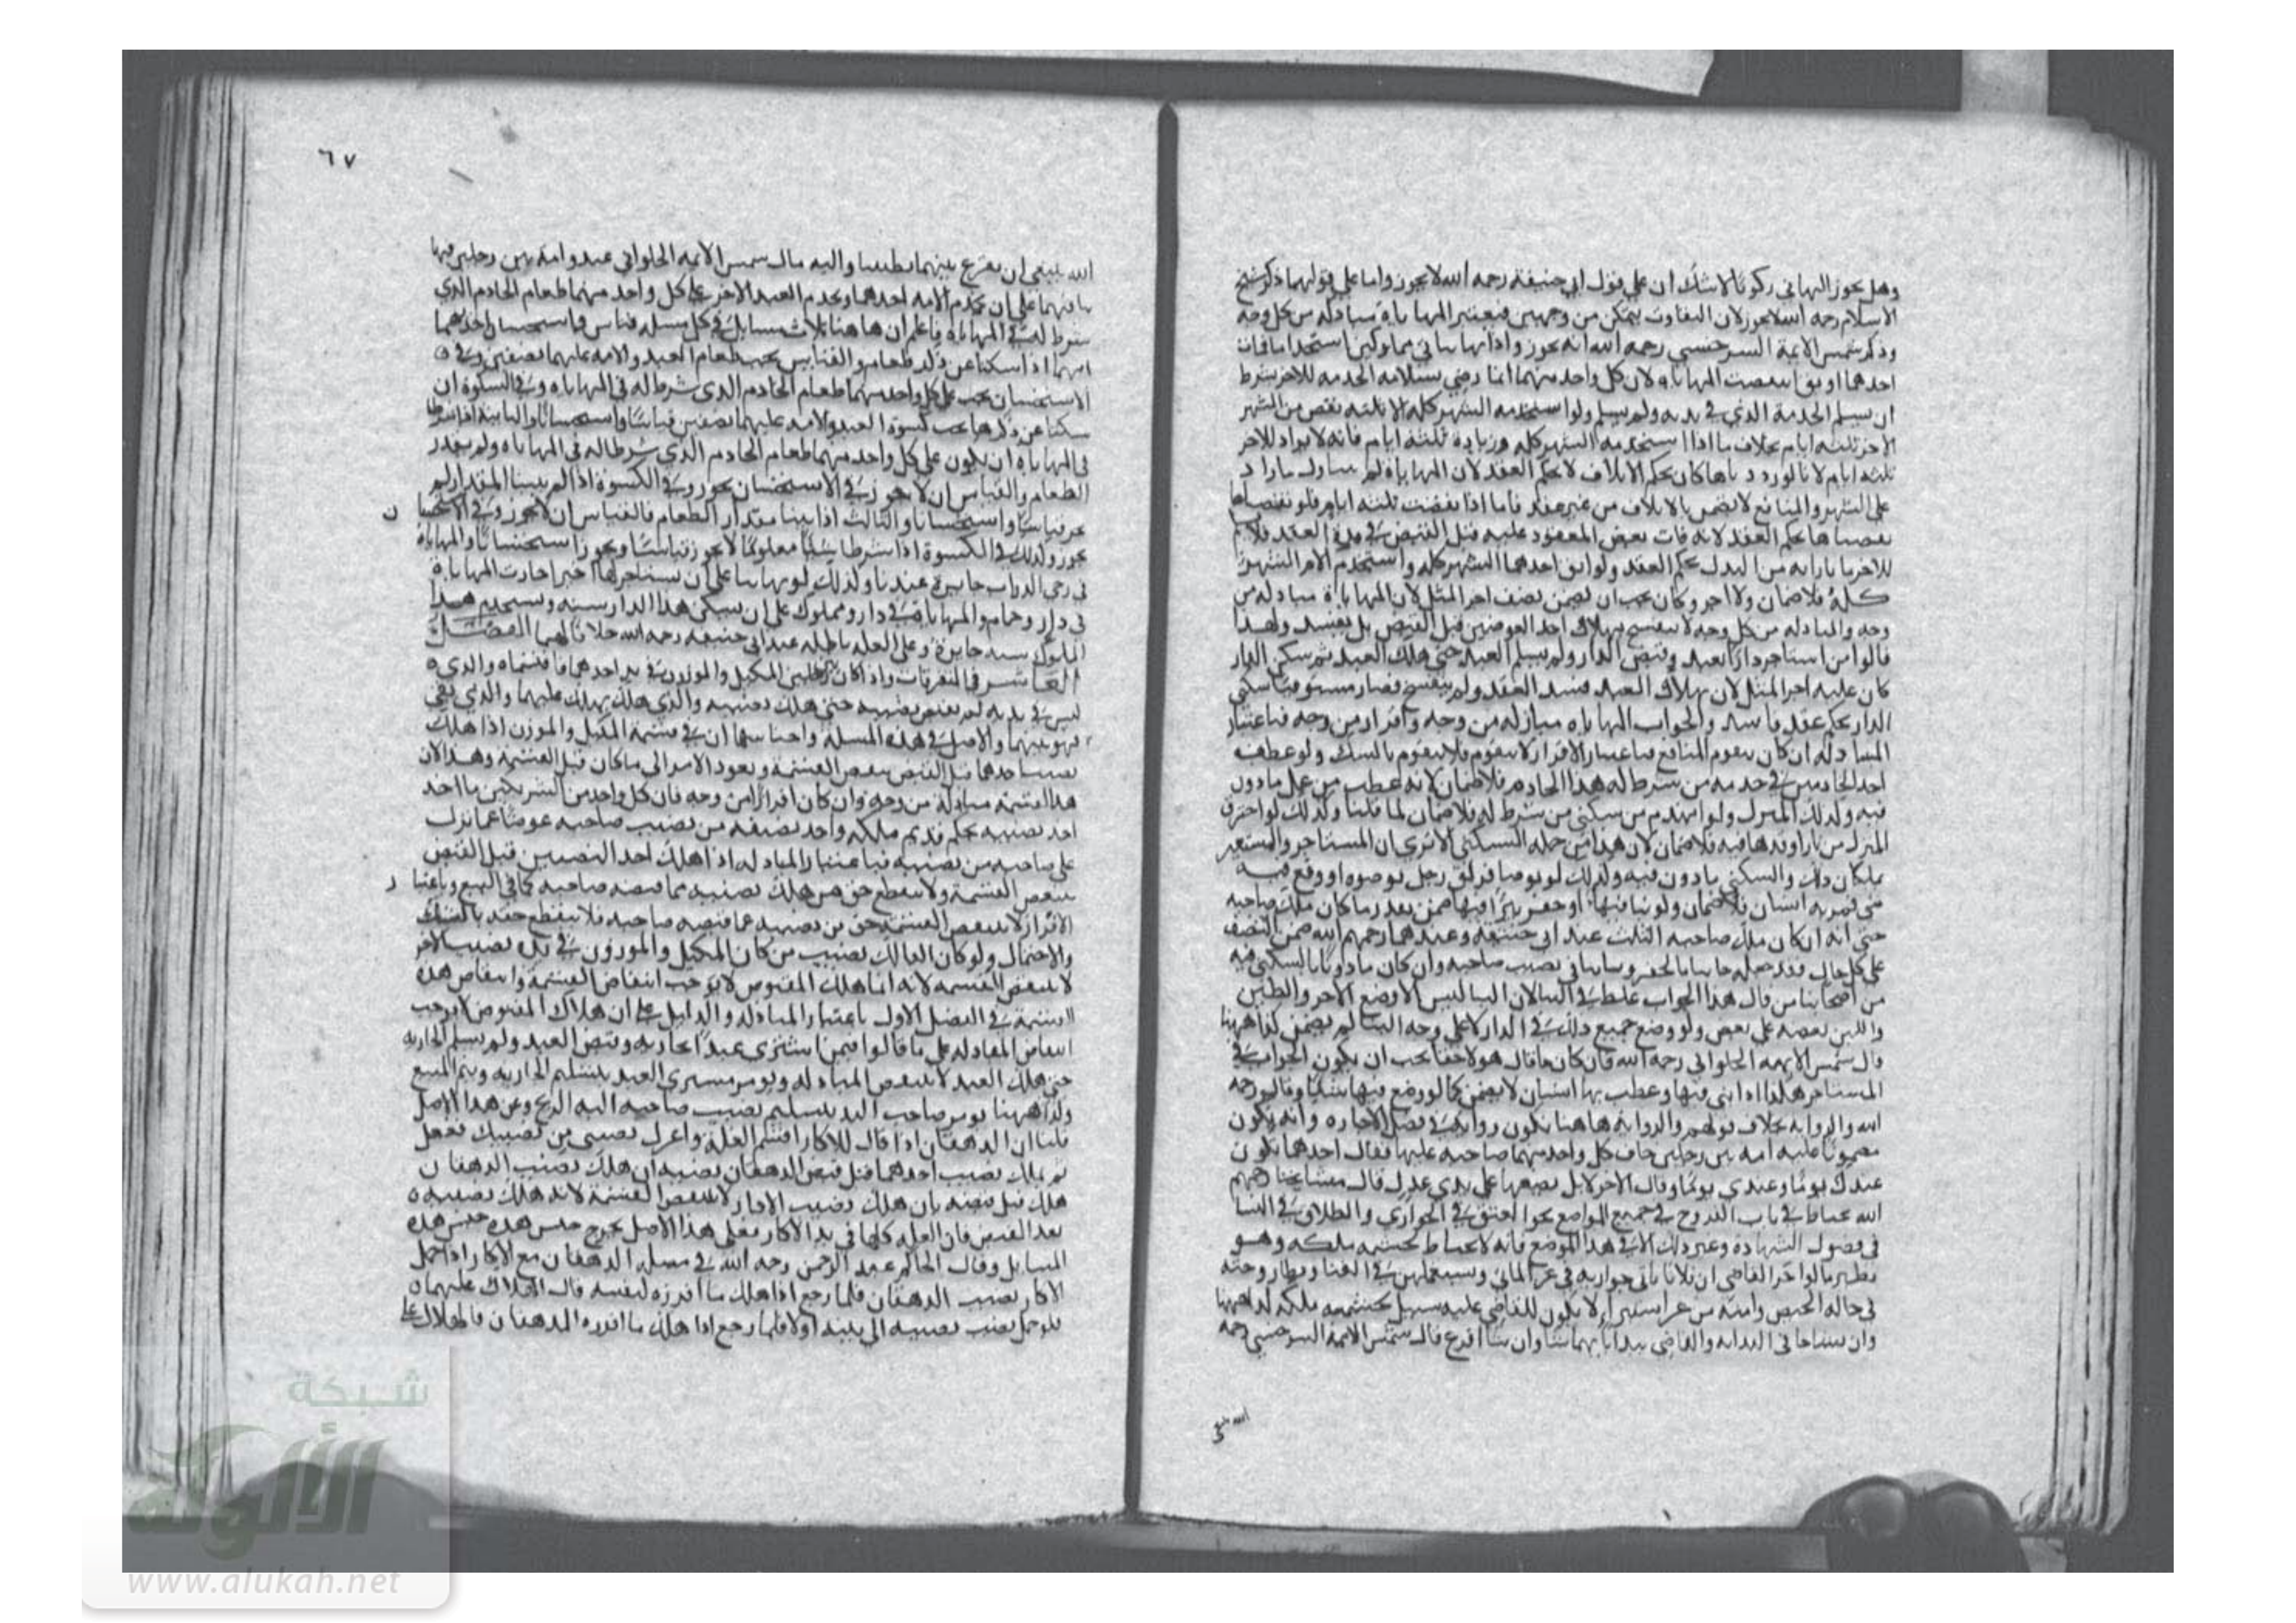 وهل يجوز التهايؤ ركوبا لا شك ان على قول ابي حنيفة رحمه الله لا يجوز واما على قولهما ذكر شيخ
الاسلام رحمه الله لا يجوز لان التفاوت يتمكن من وجهين فيعتبر المهاياة مبادلة من كل وجه
وذكر شمس الايمة السرخسي رحمه الله انه يجوز واذا تهايئا في مملوكين استخداما فمات
احدهما او ابق انتقضت المهاياة لان كل واحد منهما انما رضي بسلامة الخدمة للاخر بشرط
ان يسلم الخدمة الذي في يديه ولم يسلم ولو استخدمه الشهر كله الا ثلثة نقص من الشهر
الاخر ثلثة ايام بخلاف ما اذا استخدمه الشهر كله وزيادة ثلثة ايام فانه لا يزاد للاخر
ثلثة ايام لانا لو زدناها كان بحكم الاتلاف لا بحكم العقد لان المهاياة لم يتناول ما زاد
على الشهر والمنافع لا تضمن بالاتلاف من غير عقد فاما اذا نقصت ثلثة ايام فلو نقصناها
نقصناها بحكم العقد لانه فات بعض المعقود عليه قبل القبض في مدة العقد فلا يسلم
للاخر ما بازائه من البدل بحكم العقد ولو ابق احدهما الشهر كله واستخدم الاخر الشهر
كله فلا ضمان ولا اجر وكان يجب ان يضمن نصف اجر المثل لان المهاياة مبادلة من
وجه والمبادلة من كل وجه لا ينفسخ بهلاك احد العوضين قبل القبض بل يفسد ولهذا
قالوا من استاجر دارا بعبد وقبض الدار ولم يسلم العبد حتى هلك العبد ثم سكن الدار
كان عليه اجر المثل لان بهلاك العبد فسد العقد ولم ينفسخ فصار مستوفيا سكنى
الدار بحكم عقد فاسد والجواب المهاياة مبادلة من وجه وافراز من وجه فباعتبار
المبادلة ان كان يتقوم المنافع فباعتبار الافراز لا يتقوم فلا يتقوم بالشك ولو عطب
احد الخادمين في خدمة من شرط له هذا الخادم فلا ضمان لانه عطب من عمل ماذون
فيه وكذلك المنزل ولو انهدم من سكنى من شرط له فلا ضمان لما قلنا وكذلك لو احترق
المنزل من نار اوقدها فيه فلا ضمان لان هذا من جملة السكنى الا ترى ان المستاجر والمستعير
يملكان ذلك والسكنى ماذون فيه وكذلك لو توضا فزلق رجل بوضوه او وقع فيه
شي فتعثر به انسان فلا ضمان ولو بنا فيها او حفر بيرا فيها ضمن بقدر ما كان ملك صاحبه
حتى انه ان كان ملك صاحبه الثلث عند ابي حنيفة وعندهما رحمهم الله ضمن النصف
على كل حال فقد جعله جانيا بالحفر وبانيا في نصيب صاحبه وان كان ماذونا بالسكنى فيه
من اصحابنا من قال هذا الجواب غلط في البنا لان البنا ليس الا وضع الاجر والطين
واللبن بعضه على بعض ولو وضع جميع ذلك في الدار لا على وجه البنا لم يضمن كذا ههنا
قال شمس الايمة الحلواني رحمه الله فان كان ما قال هولا حقا يجب ان يكون الجواب في
المستاجر هكذا اذا بنى فيها وعطب بها انسان لا يضمن كما لو وضع فيها شيئا وقال رحمه
الله والرواية بخلاف قولهم والرواية هاهنا تكون رواية في فصل الاجارة وانه يكون
مضمونا عليه امة بين رجلين خاف كل واحد منهما صاحبه عليها فقال احدهما تكون
عندك يوما وعندي يوما وقال الاخر لا بل نضعها على يدي عدل قال مشايخنا رحمهم
الله يحتاط في باب الفروج في جميع المواضع نحو العتق في الجواري والطلاق في النسا
في فصول الشهادة وغير ذلك الا في هذا الموضع فانه لا يحتاط لحشمة ملكه وهو
نظير ما لو اخبر القاضي ان فلانا ياتي جواريه في غير الماتي ويستعملهن في الغنا ويطا زوجته
في حالة الحيض وامته من غير استبرا لا يكون للقاضي عليه سبيل لحشمة ملكه كذا ههنا
وان تشاحا في البداية والقاضي يبدا بايهما شا وان شا اقرع قال شمس الايمة السرخسي رحمه
الله ينبغي
٦٧
الله ينبغي ان يقرع بينهما تطييبا واليه مال شمس الايمة الحلواني عبد وامة بين رجلين فتهايا
بينهما على ان تخدم الامة احدهما ويخدم العبد الاخر على كل واحد منهما طعام الخادم الذي
شرط له في المهاياة فاعلم ان هاهنا ثلاث مسايل في كل مسلة قياس واستحسان احدهما
انهما اذا سكتا عن ذكر طعام والقياس يجب طعام العبد والامة عليهما نصفين وفي
الاستحسان يجب على كل واحد منهما طعام الخادم الذي شرط له في المهاياة وفي الكسوة ان
سكتا عن ذكرها يجب كسوة العبد والامة عليهما نصفين قياسا واستحسانا والثانية اذا شرطا
في المهاياة ان يكون على كل واحد منهما طعام الخادم الذي شرطا له في المهاياة ولم يقدر
الطعام والقياس ان لا يجوز في الاستحسان يجوز وفي الكسوة اذا لم يبينا المقدار لم
يجز قياسا واستحسانا والثالث اذا بينا مقدار الطعام فالقياس ان لا يجوز وفي الاستحسان
يجوز وكذلك في الكسوة اذا شرطا شيئا معلوما لا يجوز قياسا ويجوز استحسانا والمهاياة
في رعي الدواب جايزة عندنا وكذلك لو تهايئا على ان يستاجرا لها اجيرا جازت المهاياة
في دار وحمام والمهاياة في دار ومملوك على ان يسكن هذا الدار سنة ويستخدم هذا
المملوك سنة جايزة وعلى الغلة باطلة عند ابي حنيفة رحمه الله خلافا لهما الفصل
العاشر في المتفرقات واذا كان بين رجلين المكيل والموزون في يد احدهما فاقتسماه والذي
ليس في يديه لم يقبض نصيبه حتى هلك نصيبه والذي هلك يهلك عليهما والذي بقي
فهو بينهما والاصل في هذه المسلة واجناسها ان في قسمة المكيل والموزن اذا هلك
نصيب احدهما قبل القبض ينقض القسمة ويعود الامر الى ما كان قبل القسمة وهذا لان
هذا القسمة مبادلة من وجه وان كان افرازا من وجه فان كل واحد من الشريكين ما اخذ
اخذ نصيبه بحكم قديم ملكه واخذ نصفه من نصيب صاحبه عوضا عما ترك
على صاحبه من نصيبه فباعتبار المبادلة اذا هلك احد النصيبين قبل القبض
ينتقض القسمة ولا ينقطع حق من هلك نصيبه مما قبضه صاحبه كما في البيع وباعتبار
الافراز لا ينتقض القسمة حق من نصيبه عما قبضه صاحبه فلا ينقطع حقه بالشك
والاحتمال ولو كان الهالك نصيب من كان المكيل والموزون في يده نصيب الاخر
لا ينتقض القسمة لانه انما هلك المقبوض لا يوجب انتقاض القسمة وانتقاض هذه
القسمة في الفصل الاول باعتبار المبادلة والدليل على ان هلاك المقبوض لا يوجب
انتقاض المبادلة على ما قالوا فيمن اشترى عبدا بجارية وقبض العبد ولم يسلم الجارية
حتى هلك العبد لا ينتقض المبادلة ويومر مشتري العبد بتسليم الجارية ويتم البيع
وكذا ههنا يومر صاحب اليد بتسليم نصيب صاحبه اليه وعن هذا الاصل
قلنا ان الدهقان اذا قال للاكار اقسم الغلة واعزل نصيبي من نصيبك ففعل
ثم هلك نصيب احدهما قبل قبض الدهقان نصيبه ان هلك نصيب الدهقان
هلك قبل قبضه بان هلك نصيب الاكار لا ينتقض القسمة لانه هلك نصيبه
بعد القبض فان الغلة كلها في يد الاكار فعلى هذا الاصل يخرج جنس هذه
المسايل وقال الحاكم عبد الرحمن رحمه الله في مسلة الدهقان مع الاكار اذا حمل
الاكار نصيب الدهقان فلما رجع اذا هلك ما افرزه لنفسه قال الهلاك عليهما
فلو حمل نصيبه الى بيته اولا فلما رجع اذا هلك ما افرزه الدهقان فالهلاك على
شبكة
الألوكة
www.alukah.net